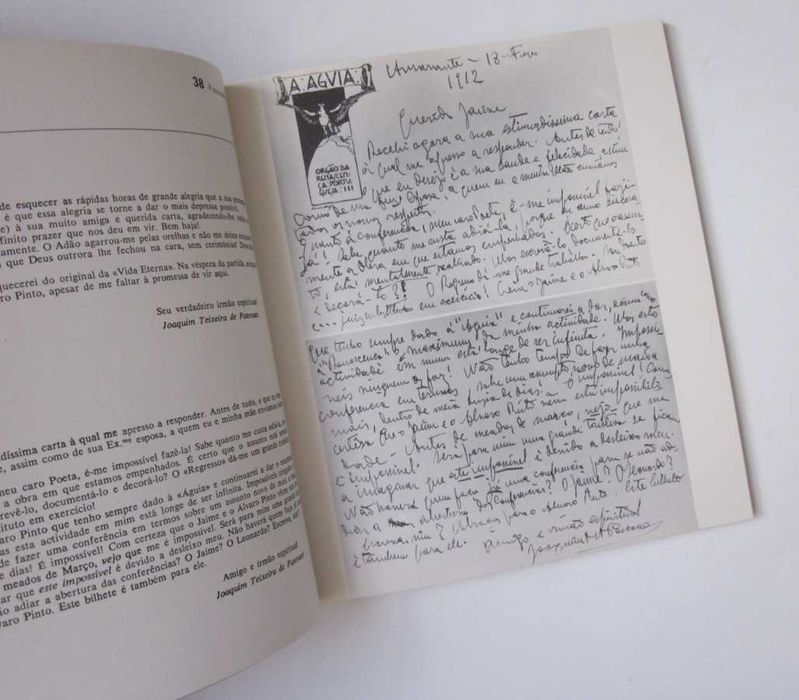 38
de esquecer as rápidas horas de grande alegria que a sua
é que essa alegria se torne a dar o mais depressa possível.
e) à sua muito amiga e querida carta, agradecendo-lhe
finito prazer que nos deu em vir. Bem haja!
tamente. O Adão agarrou-me pelas orelhas e não me deixa
que Deus outrora lhe fechou na cara, sem cerimónias!
quecerei do original da «Vida Eterna». Na véspera da partida,
ro Pinto, apesar de me faltar à promessa de vir aqui.
Seu verdadeiro irmão espiritual
Joaquim Teixeira de Pascoaes
díssima carta à qual me apresso a responder. Antes de tudo,
, assim como de sua Ex.ma esposa, a quem eu e minha mãe
eu caro Poeta, é-me impossível fazê-la! Sabe quanto me custa
a obra em que estamos empenhados. É certo que o assunto está
revê-lo, documentá-lo e decorá-lo? O «Regresso» dá-me um grande
tituto em exercício!
ro Pinto que tenho sempre dado à «Águia» e continuarei a dar o
as esta actividade em mim está longe de ser infinita. Impossível
de fazer uma conferência em termos sobre um assunto novo de mais a
e dias! É impossível! Com certeza que o Jaime e o Álvaro Pinto
meados de Março, vejo que me é impossível. Será para mim uma
ar que este impossível é devido a desleixo meu. Não haverá quem
o adiar a abertura das conferências? O Jaime? O Leonardo?
varo Pinto. Este bilhete é também para ele.
Amigo e irmão espiritual
Joaquim Teixeira de Pascoaes
A AGVIA
ORGÃO DA
RENASCENÇA
PORTVGVEZA
III
Amarante - 18 - Fev.
1912
Querido Jaime
Recebi agora a sua estimadissima carta
á qual me apresso a responder. Antes de tudo
que eu desejo é a sua saude e felicidade assim
como de sua Exma Esposa, a quem eu e minha Mãe enviamos
Quanto á conferencia, meu caro Poeta, é-me impossivel fazê-
la! Sabe quanto me custa adiá-la,
a obra em que estamos empenhados.
to, está mentalmente realisado. Mas escrevê-lo, documentá-lo
e decorá-lo?! O Regresso dá-me grande trabalho.
em exercicio! Creia o Jaime e o Alvaro Pinto
que tenho sempre dado á "Aguia" e continuarei a dar,
á "Renascença" o maximum da minha actividade. Mas esta
actividade em mim está longe de ser infinita. Impossi-
veis ninguem os faz! Não tenho tempo de fazer uma
conferencia em termos sobre um assumpto novo de mais a
mais, dentro de meia duzia de dias! É impossivel! Com
certeza que o Jaime e o Alvaro Pinto
dade. Antes de meados de março, vejo que me
é impossivel. Será para mim uma grande tristeza se ficam
a imaginar que este impossivel é devido a desleixo meu.
Não haverá quem faça uma conferencia para se não adi-
ar a abertura das Conferencias? O Jaime? O Leonardo?
Alvaro Pinto. Este bilhete
é tambem para ele.
Amigo e irmão espiritual
Joaquim T. de Pascoaes